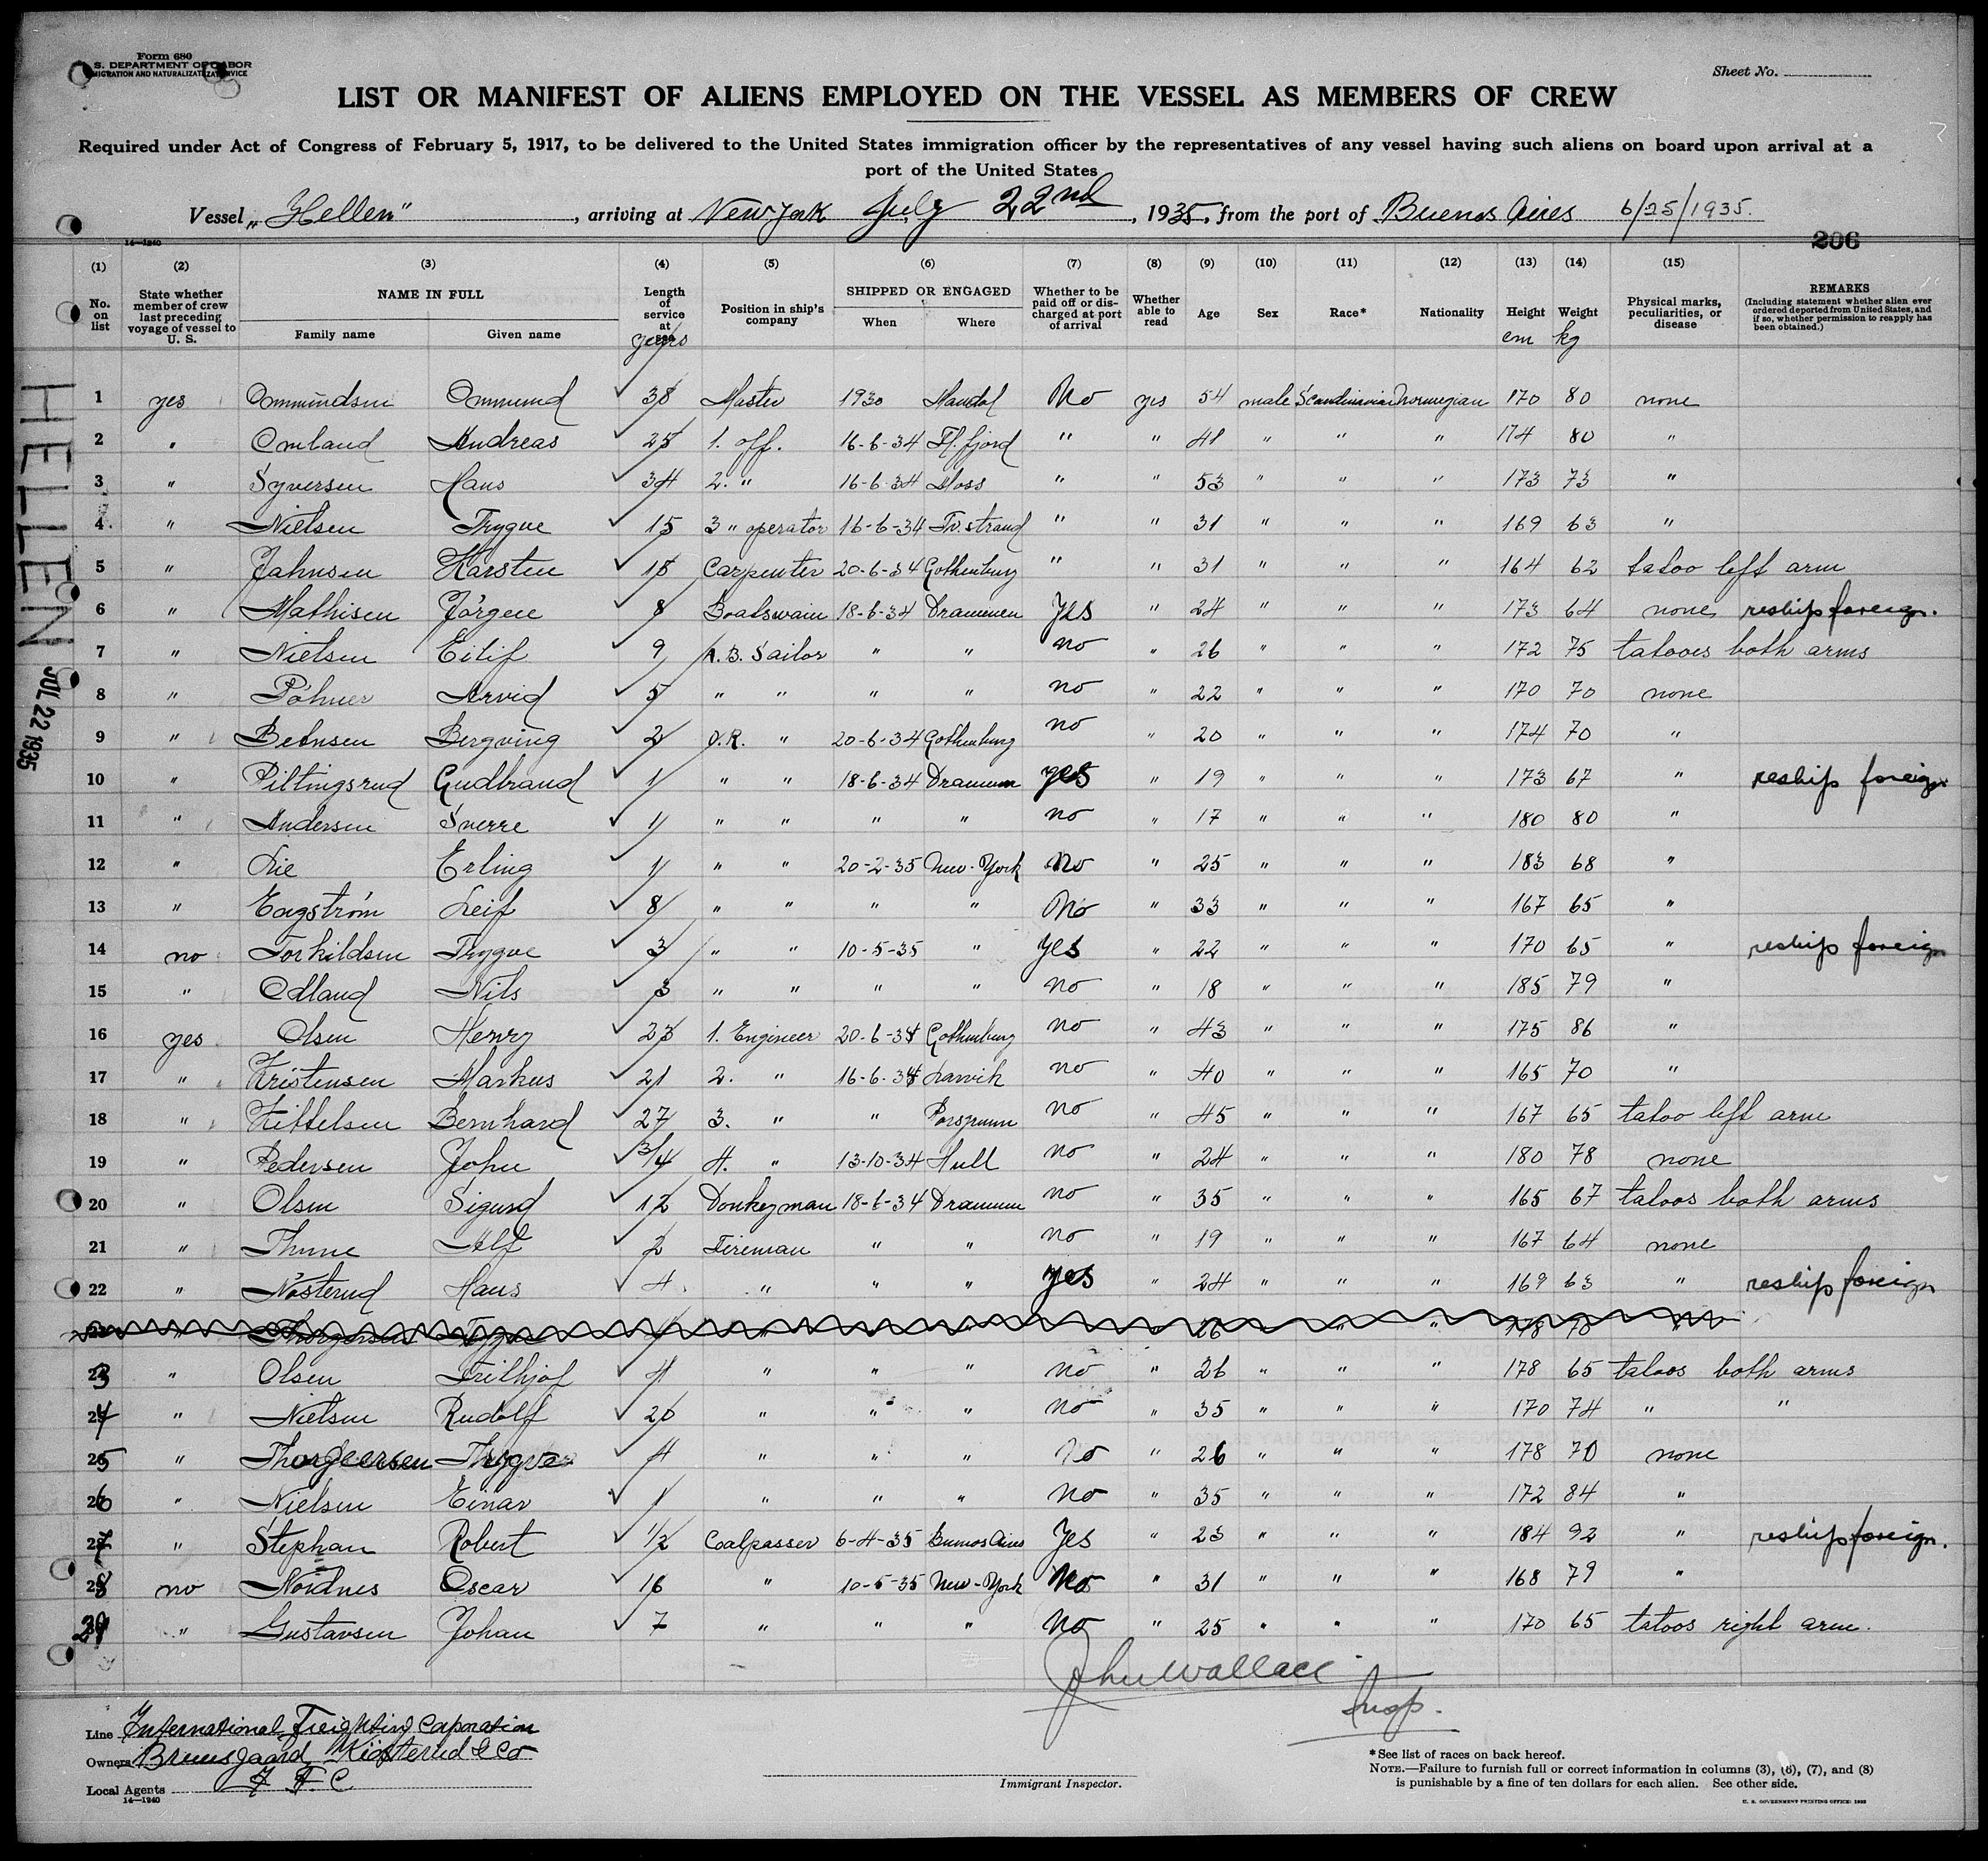 Form 680
S. DEPARTMENT OF LABOR
MIGRATION AND NATURALIZATION SERVICE
Sheet No.
LIST OR MANIFEST OF ALIENS EMPLOYED ON THE VESSEL AS MEMBERS OF CREW
Required under Act of Congress of February 5, 1917, to be delivered to the United States immigration officer by the representatives of any vessel having such aliens on board upon arrival at a
port of the United States
Vessel „Hellen", arriving at New York July 22nd, 1935, from the port of Buenos Aires 6/25/1935.
14—1240
206
(1) (2) (3) (4) (5) (6) (7) (8) (9) (10) (11) (12) (13) (14) (15)
No. on list State whether member of crew last preceding voyage of vessel to U. S. NAME IN FULL Family name Given name Length of service at sea years Position in ship's company SHIPPED OR ENGAGED When Where Whether to be paid off or discharged at port of arrival Whether able to read Age Sex Race* Nationality Height cm Weight kg Physical marks, peculiarities, or disease REMARKS (Including statement whether alien ever ordered deported from United States, and if so, whether permission to reapply has been obtained.)
HELLEN
JUL 22 1935
1 yes Ommundsen Ommund ✓ 38 Master 1930 Mandal No yes 54 male Scandinavian Norwegian 170 80 none
2 " Omland Andreas ✓ 25 1. off. 16-6-34 Fl. fjord " " 41 " " " 174 80 "
3 " Syversen Hans ✓ 34 2. " 16-6-34 Moss " " 53 " " " 173 73 "
4 " Nielsen Trygve ✓ 15 3 " operator 16-6-34 Tv. strand " " 31 " " " 169 63 "
5 " Jahnsen Karsten ✓ 15 Carpenter 20-6-34 Gothenburg " " 31 " " " 164 62 tatoo left arm
6 " Mathisen Jörgen ✓ 8 Boatswain 18-6-34 Drammen Yes " 24 " " " 173 64 none reship foreign.
7 " Nielsen Eilif ✓ 9 A.B. Sailor " " no " 26 " " " 172 75 tatooes both arms
8 " Arvid ✓ 5 " " " " no " 22 " " " 170 70 none
9 " Bergving ✓ 2 O.R. " 20-6-34 Gothenburg no " 20 " " " 174 70 "
10 " Piltingsrud Gudbrand ✓ 1 " " 18-6-34 Drammen yes " 19 " " " 173 67 " reship foreign
11 " Andersen Sverre ✓ 1 " " " " no " 17 " " " 180 80 "
12 " Lie Erling ✓ 1 " " 20-2-35 New-York No " 25 " " " 183 68 "
13 " Engström Leif ✓ 8 " " " " No " 33 " " " 167 65 "
14 no Torkildsen Trygve ✓ 3 " " 10-5-35 " Yes " 22 " " " 170 65 " reship foreign
15 " Odland Nils ✓ 3 " " " " no " 18 " " " 185 79 "
16 yes Olsen Henry ✓ 23 1. Engineer 20-6-34 Gothenburg no " 43 " " " 175 86 "
17 " Kristensen Markus ✓ 21 2. " 16-6-34 Larvik no " 40 " " " 165 70 "
18 " Kittelsen Bernhard ✓ 27 3. " " Porsgrunn no " 45 " " " 167 65 tatoo left arm
19 " Pedersen John ✓ 3/4 4. " 13-10-34 Hull no " 24 " " " 180 78 none
20 " Olsen Sigurd ✓ 12 Donkeyman 18-6-34 Drammen no " 35 " " " 165 67 tatoos both arms
21 " Thune Alf ✓ 2 Fireman " " no " 19 " " " 167 64 none
22 " Nösterud Hans ✓ 4 " " " yes " 24 " " " 169 63 " reship foreign
26 " " 178 70 "
23 " Olsen Frithjof ✓ 4 " " " no " 26 " " " 178 65 tatoos both arms
24 " Nielsen Rudolf ✓ 20 " " " no " 35 " " " 170 74 " "
25 " Thorgeersen Trygve ✓ 4 " " " No " 26 " " " 178 70 none
26 " Nielsen Einar ✓ 1 " " " no " 35 " " " 172 84 "
27 " Stephan Robert ✓ 1/2 Coalpasser 6-4-35 Buenos Aires Yes " 23 " " " 184 92 " reship foreign.
28 no Nordnes Oscar ✓ 16 " 10-5-35 New-York No " 31 " " " 168 79 "
29 " Gustavsen Johan ✓ 7 " " " No " 25 " " " 170 65 tatoos right arm.
John Wallace
Insp.
Line International Freighting Corporation
Owners Bruusgaard Kiösterud & Co
Local Agents I. F. C.
14—1240
Immigrant Inspector.
*See list of races on back hereof.
NOTE.—Failure to furnish full or correct information in columns (3), (6), (7), and (8)
is punishable by a fine of ten dollars for each alien. See other side.
U. S. GOVERNMENT PRINTING OFFICE: 1933